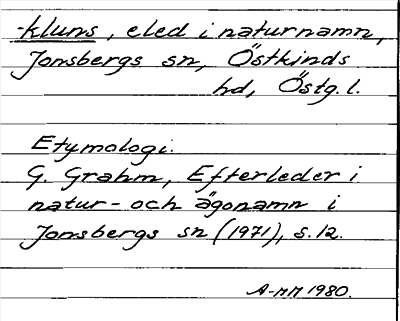 -kluns, eled i naturnamn,
Jonsbergs sn, Östkinds
hd, Östg. l.
Etymologi.
G. Grahm, Efterleder i
natur- och ägonamn i
Jonsbergs sn (1971), s. 12.
A-MM 1980.